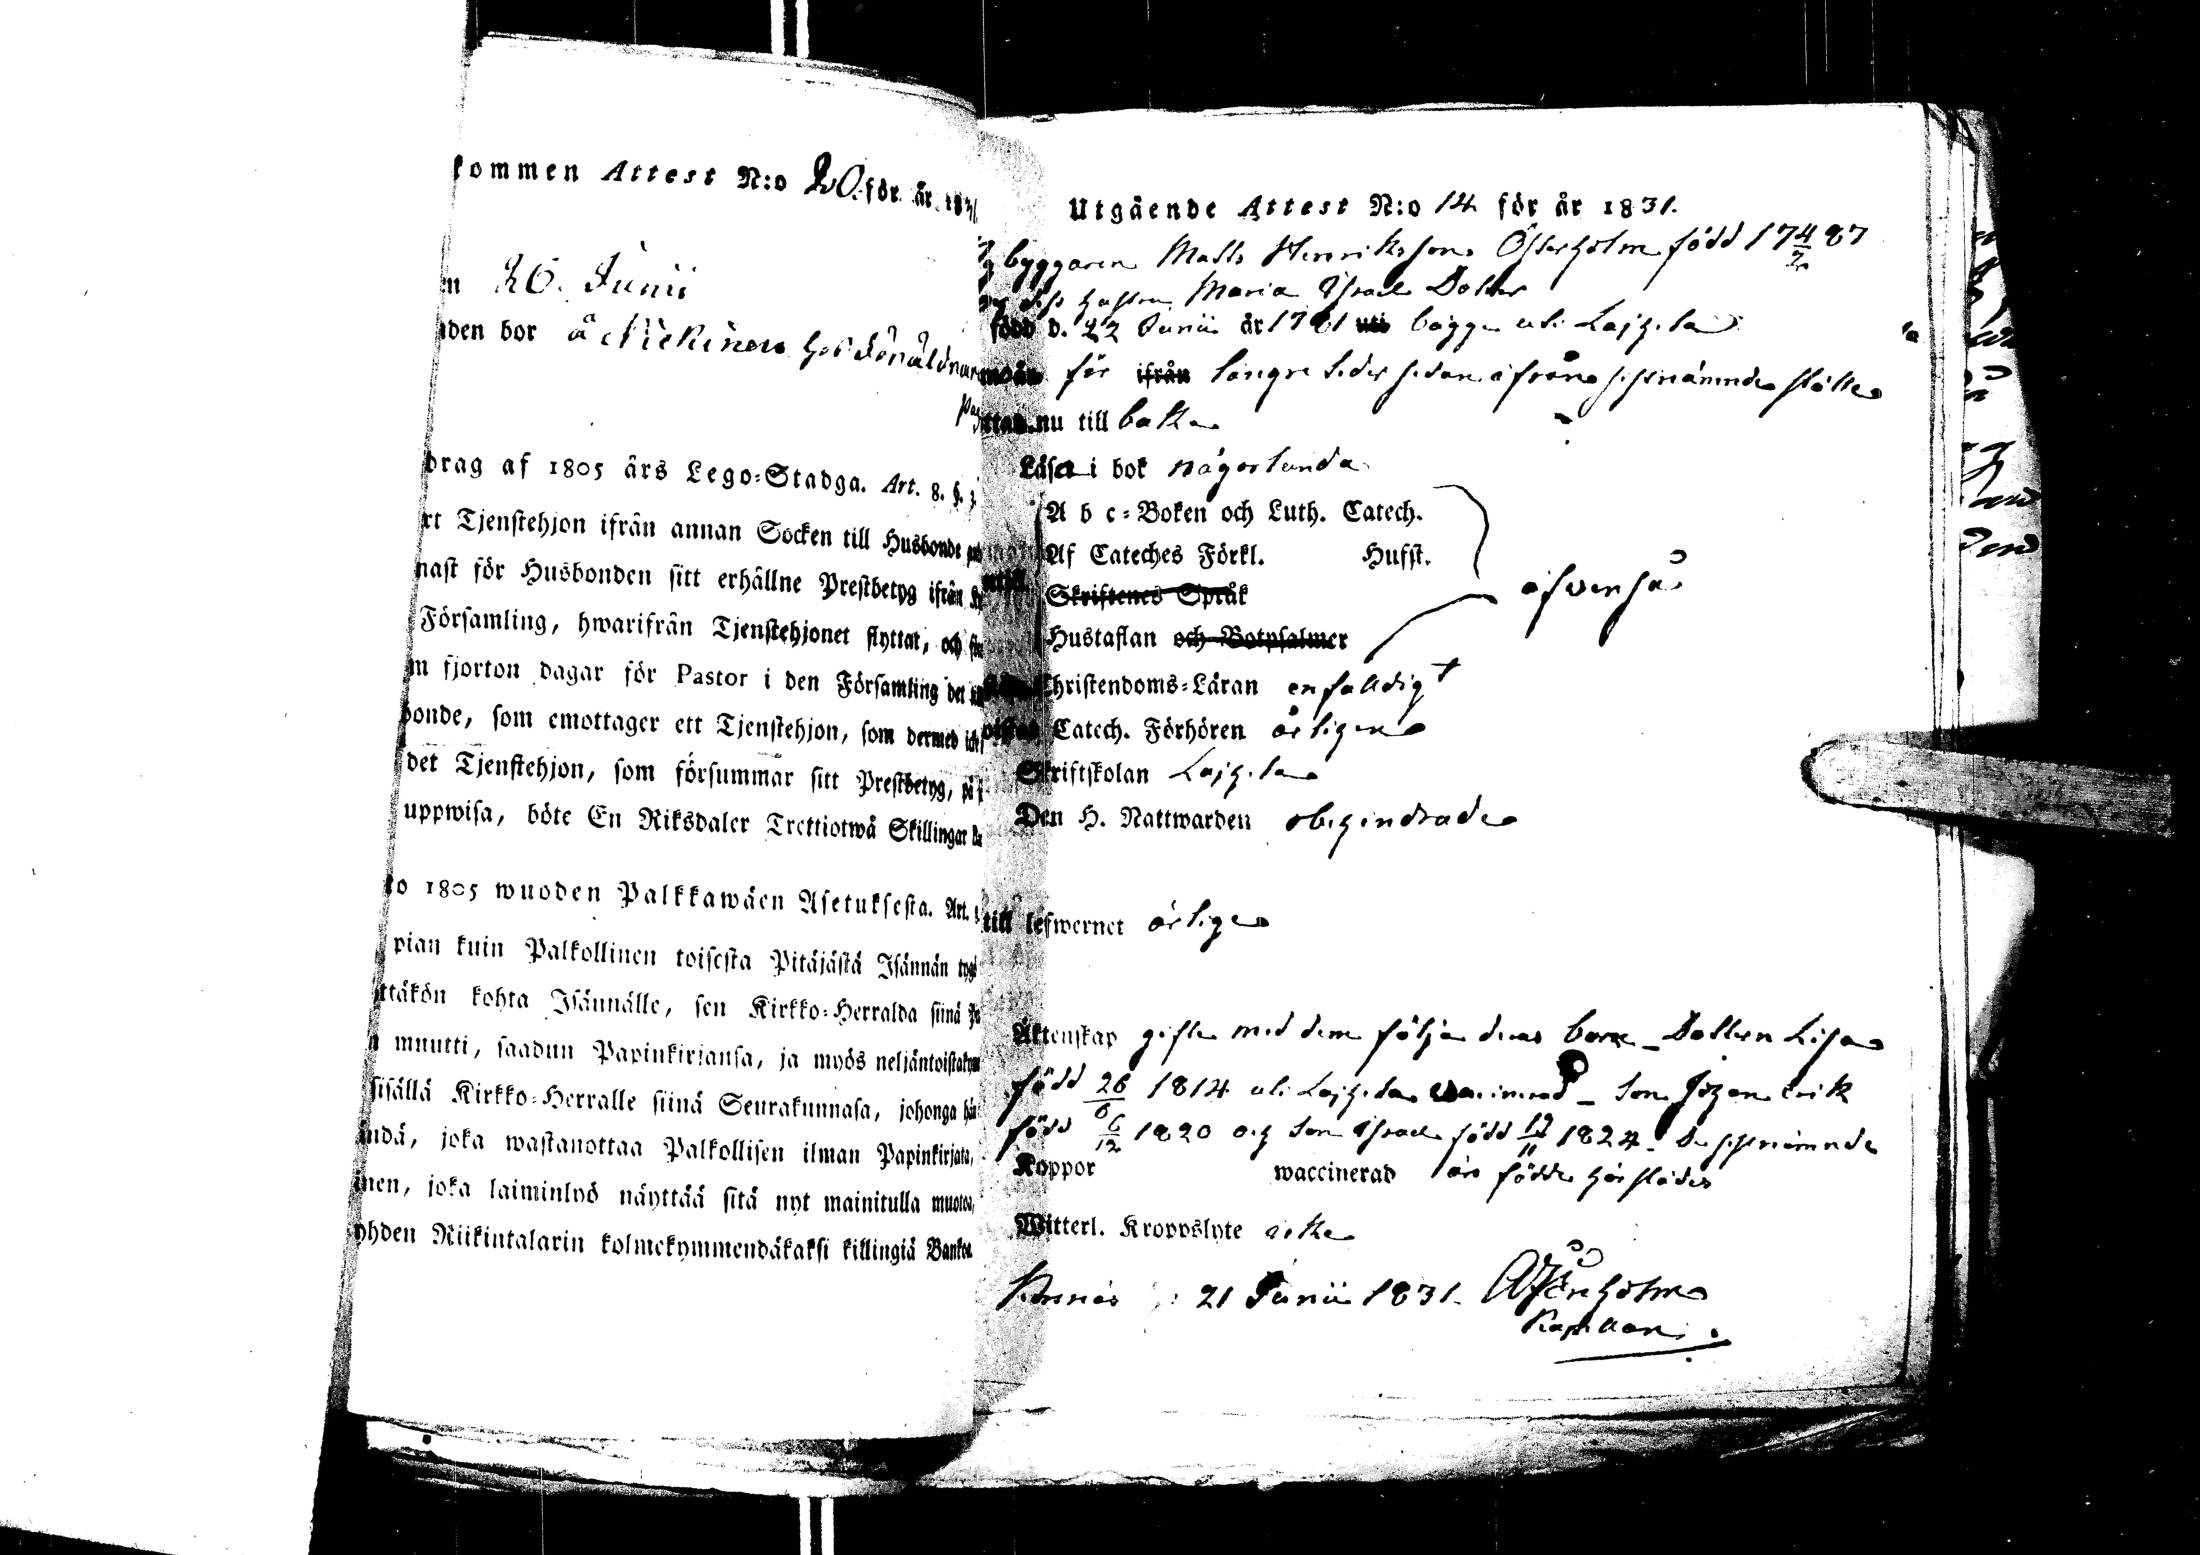 kommen Attest N:o 20. för år 1831
26. Junii
den bor å
drag af 1805 års Lego-Stadga. Art. 8. §. 3.
rt Tjenstehjon ifrån annan Socken till Husbonde
nast för Husbonden sitt erhållne Prestbetyg ifrån
Församling, hwarifrån Tjenstehjonet flyttat, och
m fjorton dagar för Pastor i den Församling det
bonde, som emottager ett Tjenstehjon, som dermed
det Tjenstehjon, som försummar sitt Prestbetyg, på
uppwisa, böte En Riksdaler Trettiotwå Skillingar
to 1805 wuoden Palkkawäen Asetuksesta. Art.
pian kuin Palkollinen toisesta Pitäjästä Isännän
ttäkön kohta Isännälle, sen Kirkko-Herralda siinä
muutti, saadun Papinkirjansa, ja myös
sisällä Kirkko-Herralle siinä Seurakunnasa, johonga
ändä, joka wastanottaa Palkollisen ilman Papinkirjata,
inen, joka laiminlyö näyttää sitä nyt mainitulla muotoa,
yhden Riikintalarin kolmekymmendäkaksi killingiä Banko
Utgående Attest N:o 14 för år 1831.
byggaren Matts Henriksson Österholm född 17 4/2 87
Hustru Maria Israels Dotter
född d. 22 Junii år 1781 uti bägge uti Lajhela
för ifrån längre tider sedan ifrån sistnämnde ställe
nu till baka
Läser i bok någorlunda
A b c-Boken och Luth. Catech.
Af Cateches Förkl. Husst.
Skriftenes Språk
äfwenså
Hustaflan och Botpsalmer
Christendoms-Läran enfalldigt
Catech. Förhören årligen
Skriftskolan Lajhela
Den H. Nattwarden obehindrade
till lefwernet ärlige
Äktenskap gifte med dem följa deras barn - Dottern Lisa
född 26/6 1814 uti Lajhela waccinerad - Son Johan Erik
född 6/12 1820 och Son Israel född 19/11 1824. De sistnämnde
Koppor waccinerad äro födde härstädes
Witterl. Kroppslyte icke
21 Junii 1831.
Kapellan.